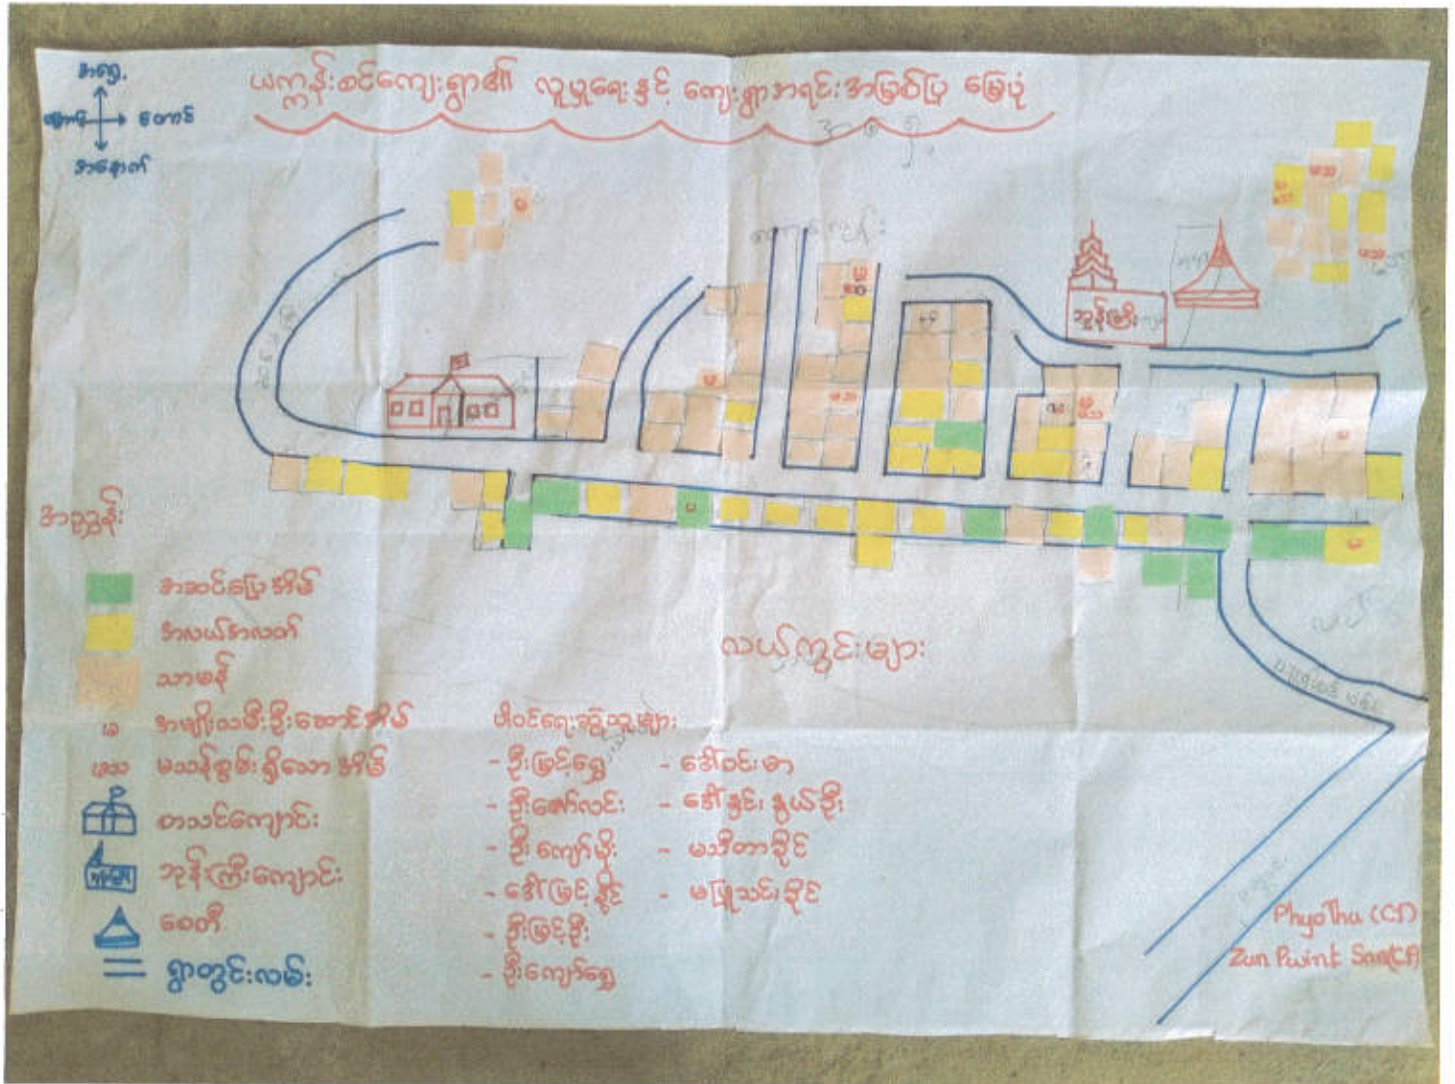 အရှေ့
တောင်
အနောက်
ယက္ကန်းစင်ကျေးရွာ၏ လူမှုရေးနှင့် ကျေးရွာအရင်းအမြစ်ပြ မြေပုံ
မ
မသ
မသ
ဘုန်းကြီး
မ
မသ
မ
မသ
မ
မ
မ
အညွှန်း
အဆင်ပြေအိမ်
အလယ်အလတ်
သာမန်
မ အမျိုးသမီးဦးဆောင်အိမ်
မသ မသန်စွမ်းရှိသောအိမ်
စာသင်ကျောင်း
ဘုန်းကြီးကျောင်း
စေတီ
ရွာတွင်းလမ်း
လယ်ကွင်းများ
ပါဝင်ရေးဆွဲသူများ
- ဦးမြင့်ရွှေ
- ဦးဇော်လင်း
- ဦးကျော်မိုး
- ဒေါ်မြင့်နိုင်
- ဦးမြင့်ဦး
- ဦးကျော်ရွှေ
- ဒေါ်ဝင်းမာ
- ဒေါ်နှင်းနွယ်ဦး
- မသီတာခိုင်
- မဖြူသင်းခိုင်
Phyo Thu (CF)
Zun Pwint San(CF)